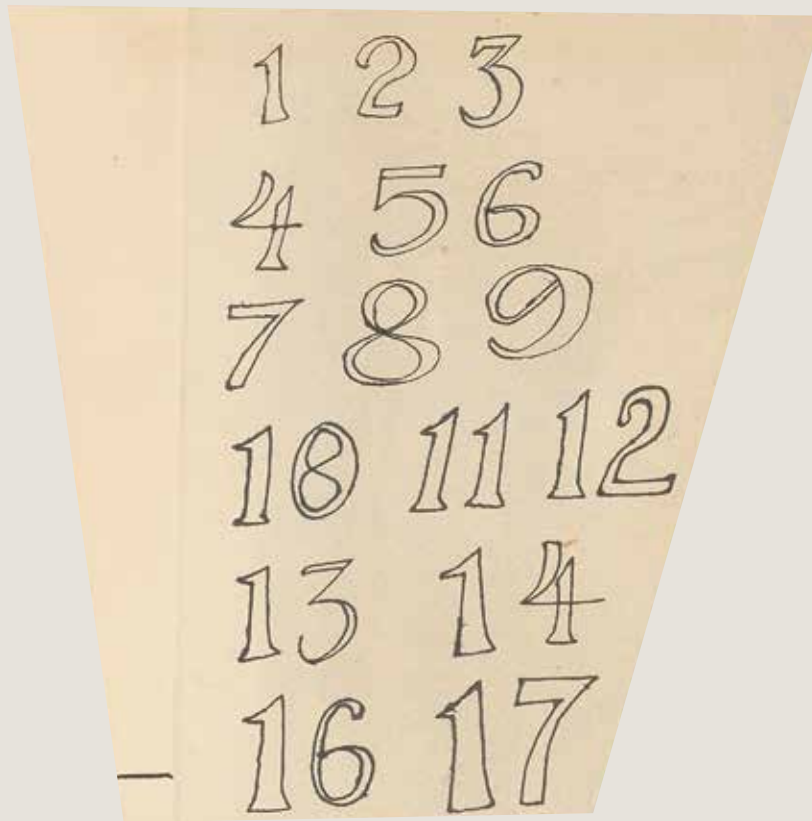 1 2 3
4 5 6
7 8 9
10 11 12
13 14
16 17